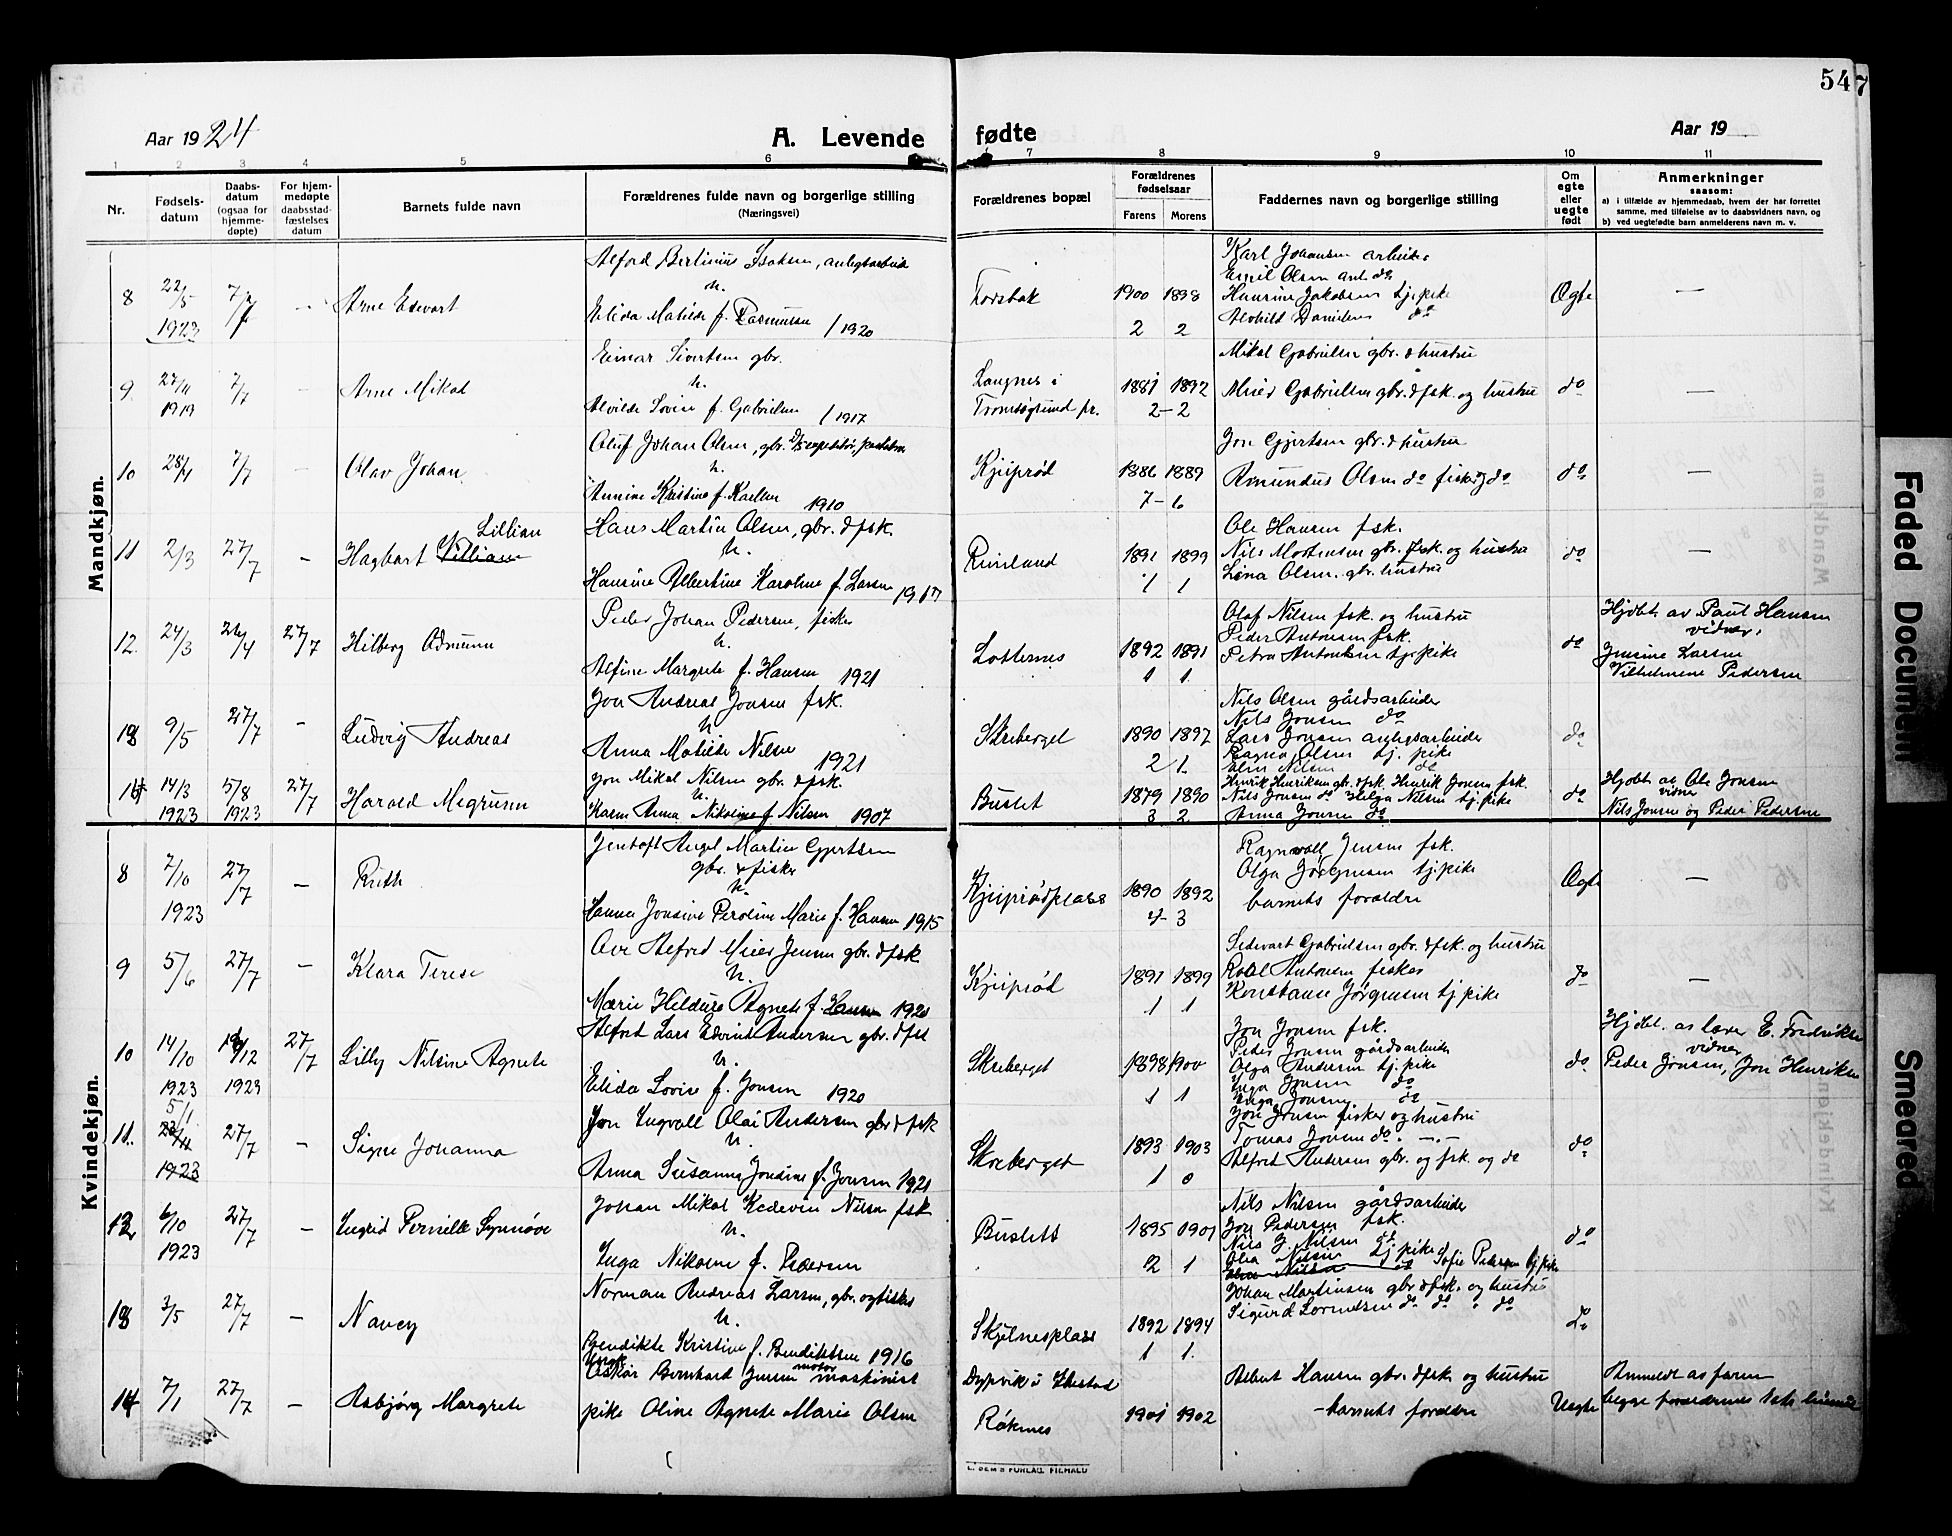 Aar 1924
A. Levende fødte
Aar 19
54
7
1 2 3 4 5 6 7 8 9 10 11
Nr.
Fødsels-
datum
Daabs-
datum
(ogsaa for
hjemme-
døpte)
For hjem-
medøpte
daabsstad-
fæstelses
datum
Barnets fulde navn
Forældrenes fulde navn og borgerlige stilling
(Næringsvei)
Forældrenes bopæl
Forældrenes
fødselsaar
Farens Morens
Faddernes navn og borgerlige stilling
Om
egte
eller
uegte
født
Anmerkninger
saasom:
a) i tilfælde av hjemmedaab, hvem der har forrettet
samme, med tilføielse av to daabsvidners navn, og
b) ved uegtefødte barn anmelderens navn m. v.
Mandkjøn.
8 22/5 1923 7/7 – Arne Edvart
Alfred Bertinius Isaksen, anlegsarbeide
h.
Elida Matilde f. Rasmussen / 1920
1900 1898
2 2
Karl Johansen arbeide
Emil Olsen anl. do
Hansine Jakobsen tj. pike
Alvhild Danielsen do
Ægte —
9 7/7 – Arne Mikal
Einar Sivertsen gbr.
h.
Alvilde Lovise f. Gabrielsen / 1917
Langnes i
Tromsøysund pr.
1881 1892
2 – 2
Mikal Gabrielsen gbr. & hustru
Meier Gabrielsen gbr. & fsk. og hustru
do —
10 28/4 7/7 – Olav Johan
Oluf Johan Olsen, gbr.
h.
Annine Kristine f. Karlsen 1910
1886 1889
7 – 6
Jon Gjertsen gbr. & hustru
Amundus Olsen do fisker do
do —
11 2/3 27/7 – Hagbart Villiam Lillian
Hans Martin Olsen, gbr. & fsk.
h.
Hansine Albertine Karoline f. Larsen 1917
1891 1899
1 1
Ole Hansen fsk.
Nils Mortensen gbr. fsk. og hustru
Lina Olsen. gbr. hustru
do —
12. 24/3 27/7 Hilberg Odmunn
Peder Johan Pedersen, fisker
h.
Alfine Margrete f. Hansen 1921
Lotternes
1892 1891
1 1.
Olaf Nilsen fsk. og hustru
Peder Antonsen fsk.
Petra Antonsen tj. pike
do
Hjdbt. av Paul Hansen
vidner:
Jensine Larsen
Vilhelmine Pedersen
13 9/5 27/7 – Ludvig Andreas
Jon Andreas Jonsen fsk.
h.
Anna Matilde Nilsen 1921
Skreberget
1890 1897
2 1.
Nils Olsen gårdsarbeider
Nils Jonsen do
Lars Jonsen anlegsarbeider
Ragna Olsen tj. pike
Elen Nilsen do
do
14 14/3 1923 5/8 1923 27/7 Harald Megrunn
Jon Mikal Nilsen gbr. & fsk.
h.
Karen Anna Nikoline f. Nilsen 1907
Buslet
1879 1890
3 2
Henrik Henriksen gbr. & fsk. Henrik Jonsen fsk.
Nils Jonsen do Helga Nilsen tj. pike
Anna Jonsen do
do
Hjdbt av Ole Jonsen
vidner
Nils Jonsen og Peder Pedersen
Kvindekjøn.
8 7/10 1923 27/7 – Ruth
Jentoft Angel Martin Gjertsen
gbr. & fisker
h.
Hanna Jonsine Peroline Marie f. Hansen 1915
1890 1892
4 – 3
Ragnvall Jensen fsk.
Olga Jørgensen tj. pike
barnets foreldre
Ægte —
9 5/6 27/7 – Klara Terese
Ove Alfred Meier Jensen gbr. & fsk.
h.
Marie Hildure Agnete f. Hansen 1921
1891 1899
1 1
Sedevart Gabrielsen gbr. & fsk. og hustru
Roal Antonsen fisker
Konstanse Jørgensen tj. pike
do —
10 14/10 1923 19/12 1923 27/7 Lilly Nilsine Agnete
Alfred Lars Edvind Andersen gbr. & fsk
h.
Elida Lovise f. Jonsen 1920
Skreberget
1898 1900
1 1
Jon Jonsen fsk.
Peder Jonsen gårdsarbeider
Olga Andersen tj. pike
Inga Jonsen do
Inga Jonsen do
do
Hjdbt. av lærer E. Fredriksen
vidner
Peder Jonsen, Jon Henriksen
11. 5/1 1923 27/7 – Signe Johanna
Jon Ingvall Olai Andersen gbr & fsk
h.
Anna Susanna Jonsine f. Jonsen 1921
Skreberget
1893 1903
1 0
Jon Jonsen fisker og hustru
Tomas Jonsen do. —.—
Alfred Andersen gbr. og fsk. og do
do
12 6/10 1923 27/7 – Ingrid Pernille Synnøve
Johan Mikal Kedevin Nilsen fsk
h.
Inga Nikoline f. Pedersen
Buslett
1895 1901
2 1
Nils Nilsen gårdsarbeider
Jon Pedersen fsk.
Nils J. Nilsen do.
Olea Nilsen tj. pike
Nilsen do Sofie Pedersen tj. pike
do
13 3/5 27/7 – Nancy
Norman Andreas Larsen, gbr. og fisker
h.
Bendikte Kristine f. Bendiktsen 1916
Skjelnesplass
1892 1894
1 1.
Johan Martinsen gbr. & fsk. og hustru
Sigurd Lorentsen do do " do
do
14 7/1 27/7 – Asbjørg Margrete
Ungk.
Oskar Bernhard Jensen motor maskinist
pike Oline Agnete Marie Olsen
Dypvik i Ibestad
Røknes
1901 1902
Albert Hansen gbr. & fsk. og hustru
– barnets foreldre
Uegte
Anmeldt av faren
begge foreldrenes 1ste
E. SEM'S FORLAG, FR.HALD
Faded Document
Smeared